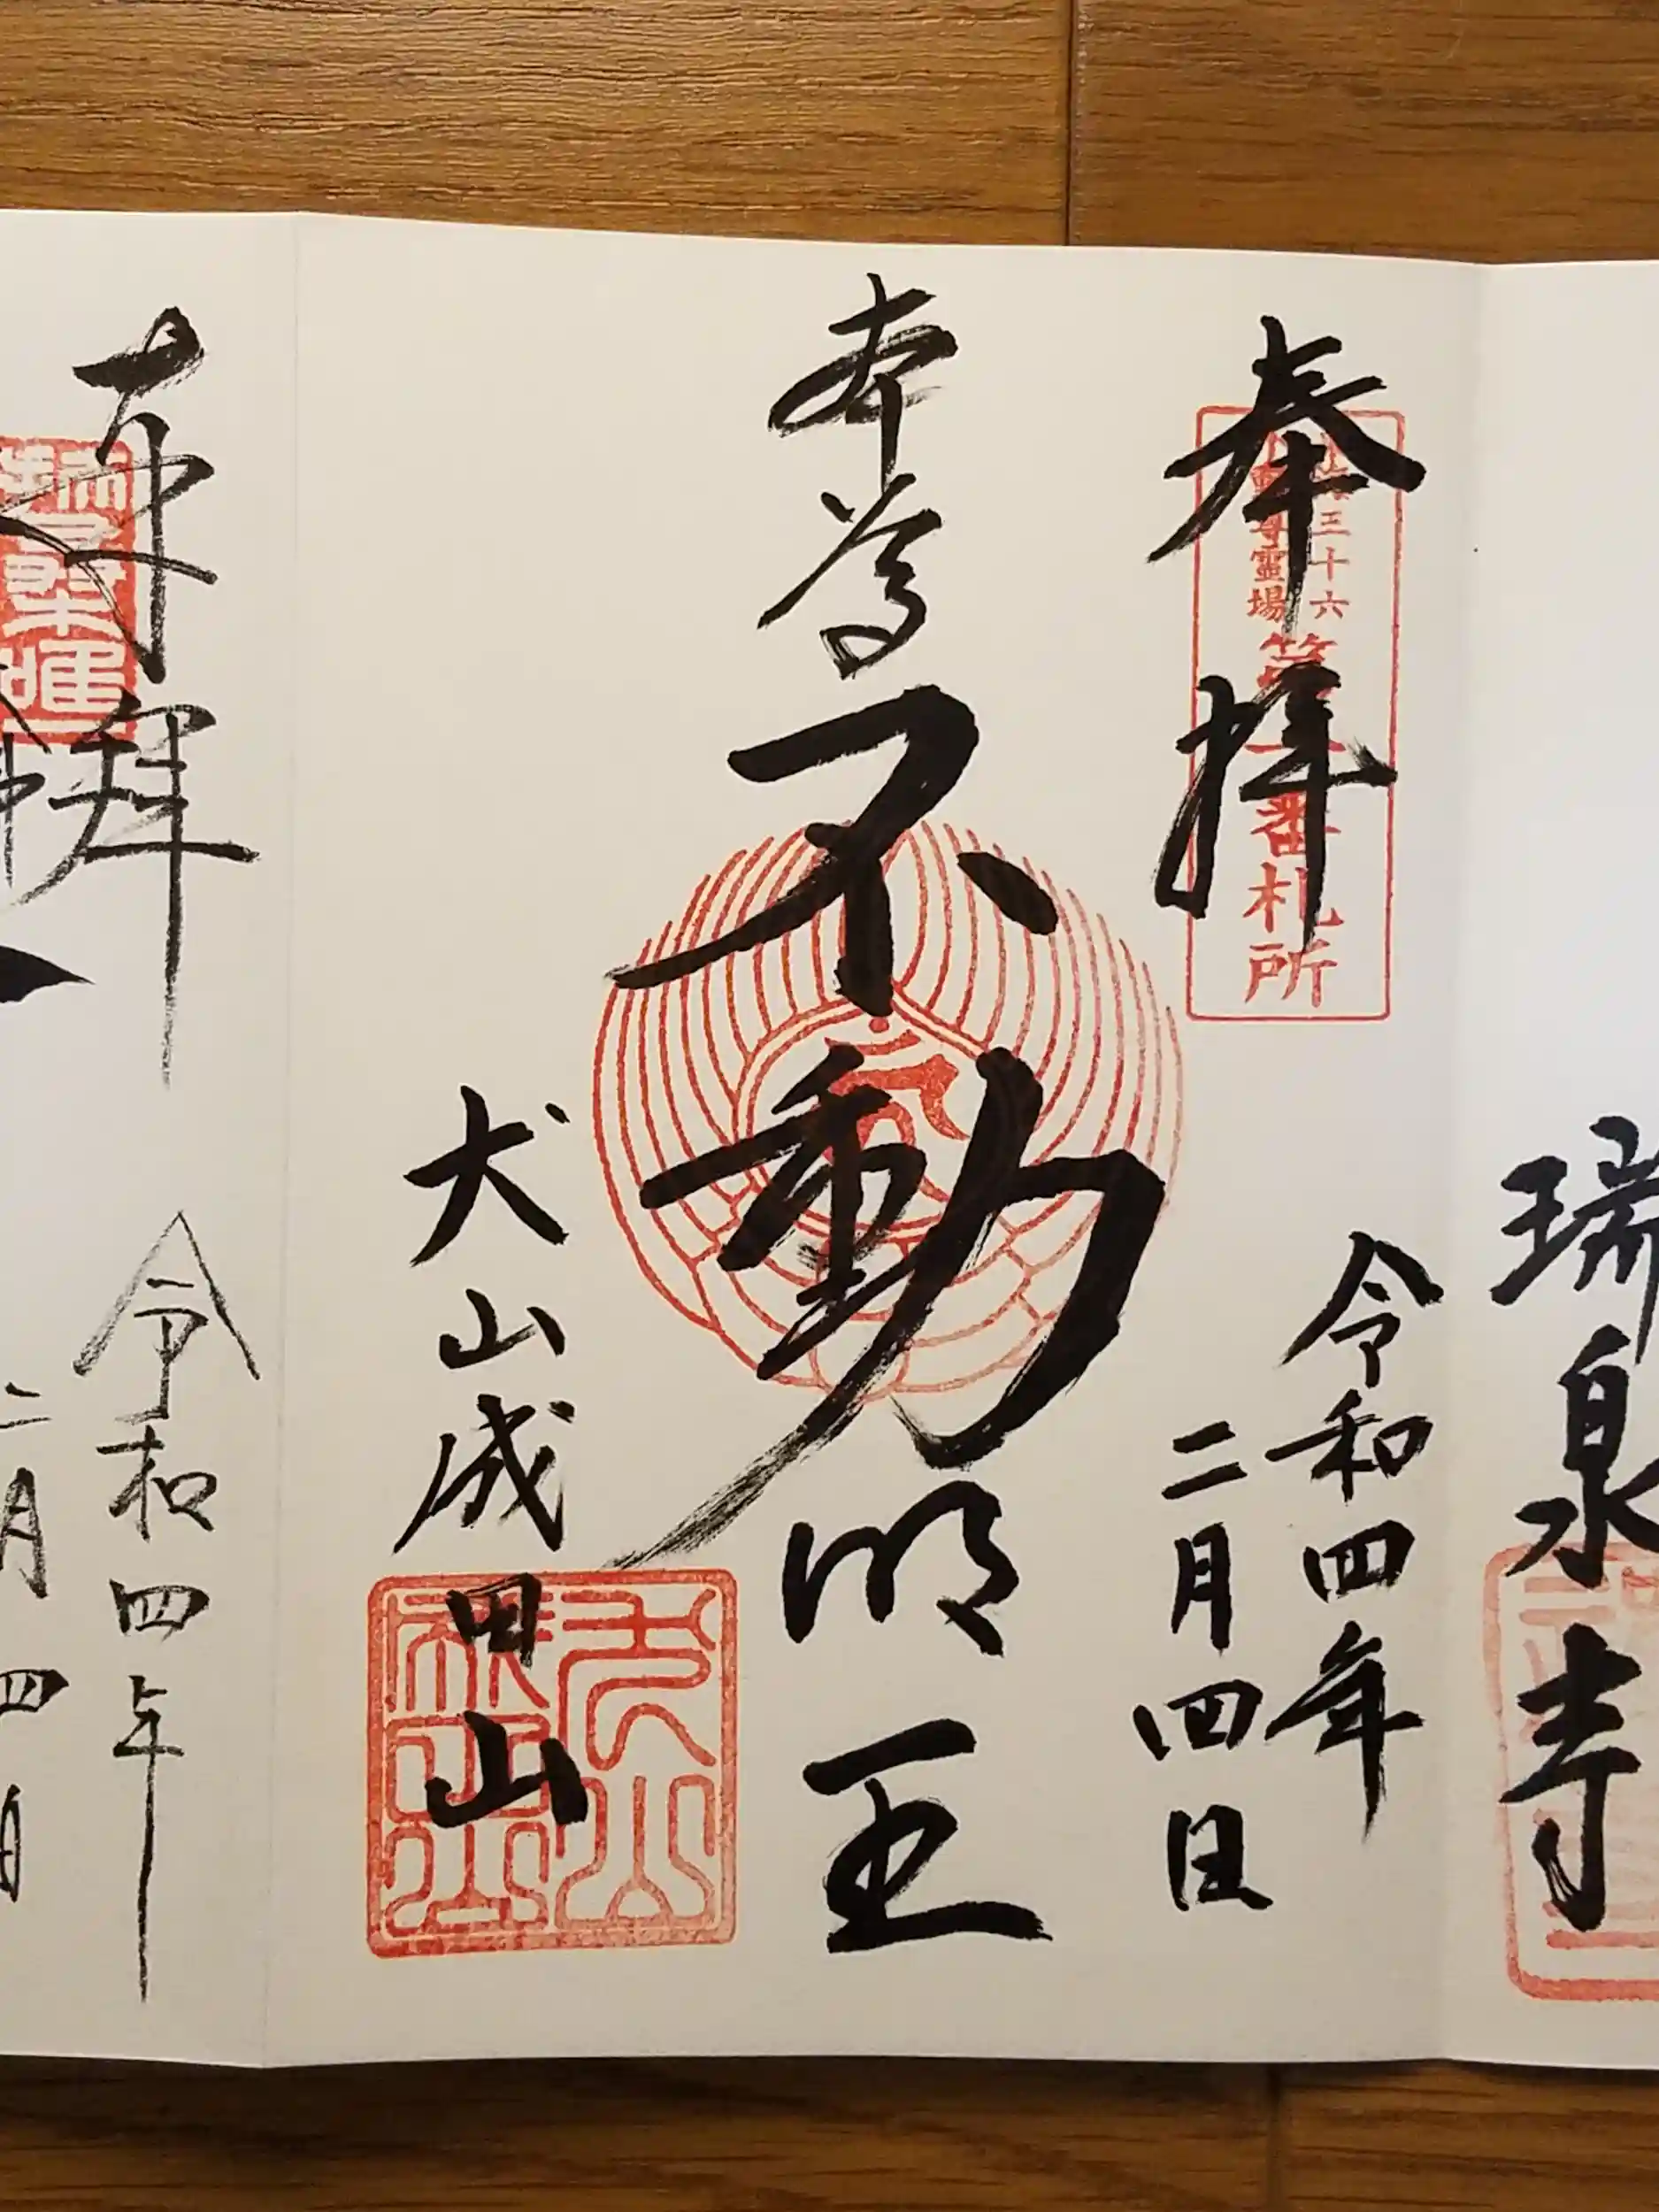 瑞泉寺
奉拝
三十六
尊霊場
第一番札所
令和四年
二月四日
本尊
不動明王
犬山成田山
奉拝
令和四年
二月四日